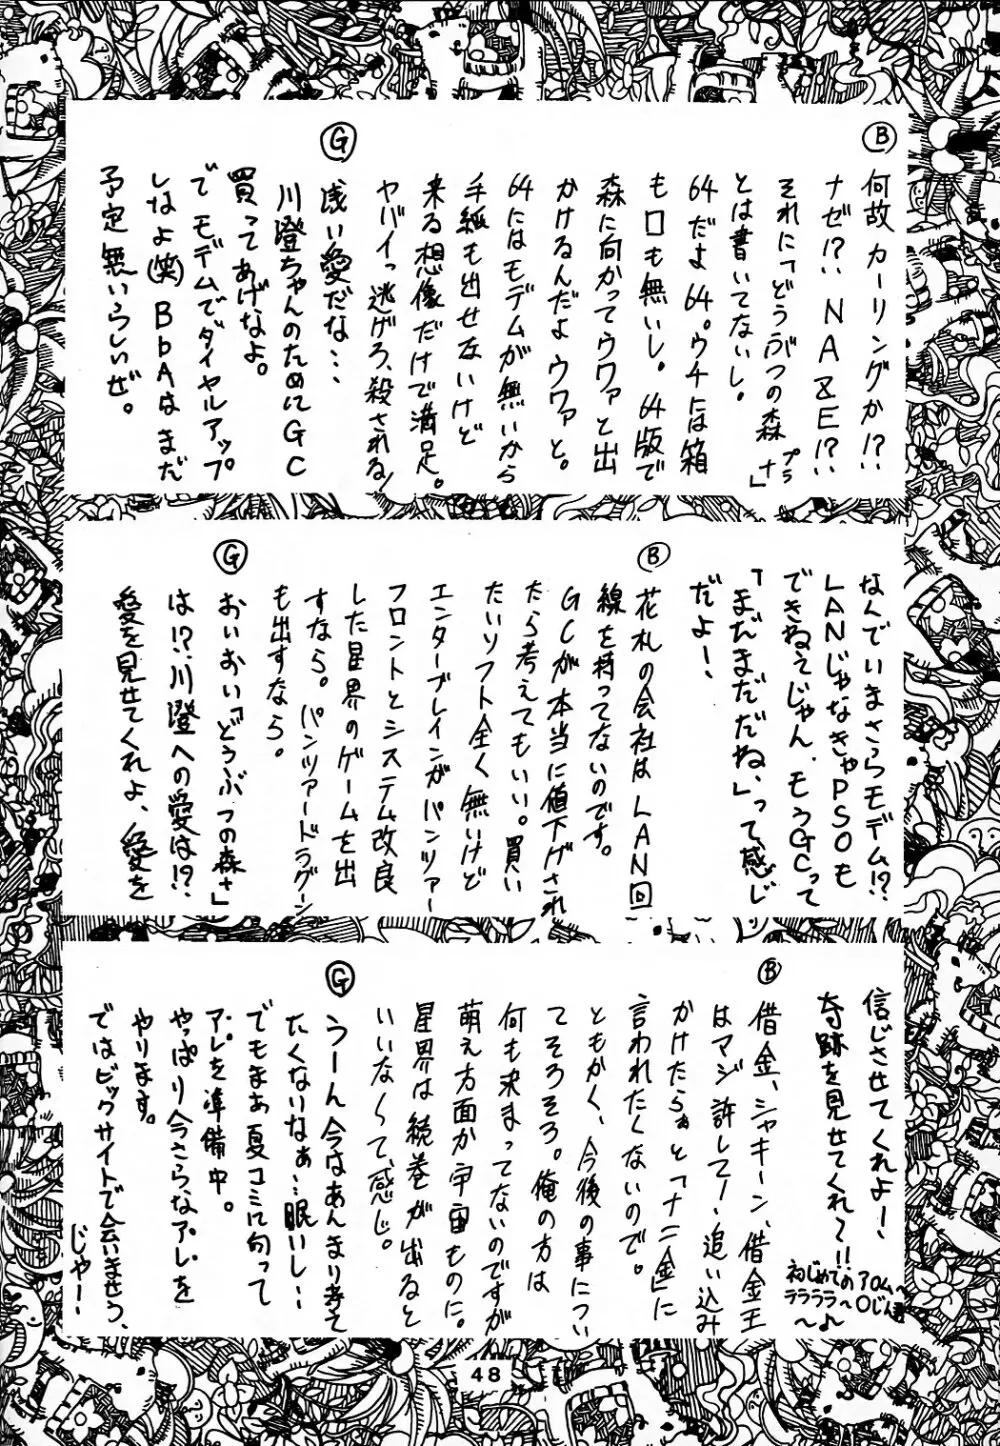 Ⓑ
何故カーリングか!?
ナゼ!? NAZE!?
それに「どうぶつの森プラ
ナ」
とは書いてないし。
64だよ64。ウチには箱
も口も無いし。64版で
森に向かってウワァと出
かけるんだよウワァと。
64にはモデムが無いから
手紙も出せないけど
来る想像だけで満足。
ヤバイっ逃げろ、殺される!
Ⓖ
浅い愛だな…
川澄ちゃんのためにGC
買ってあげなよ。
で モデムでダイヤルアップ
しなよ(笑) BbAはまだ
予定無いらしいぜ。
なんでいまさらモデム!?
LANじゃなきゃPSOも
できねえじゃん。もうGCって
「まだまだだね、」って感じ
だよー、
Ⓑ
花札の会社はLAN回
線を持ってないのです。
GCが本当に値下げされ
たら考えてもいい。買い
たいソフト全く無いけど
エンターブレインがパンツァー
フロントとシステム改良
した星界のゲームを出
すなら。パンツァードラグーン
も出すなら。
Ⓖ
おいおい「どうぶつの森+」
は!? 川澄への愛は!?
愛を見せてくれよ、愛を
信じさせてくれよー、
奇跡を見せてくれ〜!!
初じめてのアロム〜
ラララララ〜♪
Ⓑ
借金、シャキーン、借金王
はマジ許して〜追い込み
かけたらぁと「ナニ金」に
言われたくないので。
ともかく、今後の事につい
てそろそろ。俺の方は
何も決まってないのですが
萌え方面か宇宙ものに。
星界は続巻が出ると
いいな〜って、感じ。
Ⓖ
うーん今はあんまり考え
たくないなぁ…眠いし…
でもまあ夏コミに向って
アレを準備中。
やっぱり今さらなアレを
やります。
ではビックサイトで会いませう、
じゃー、
48